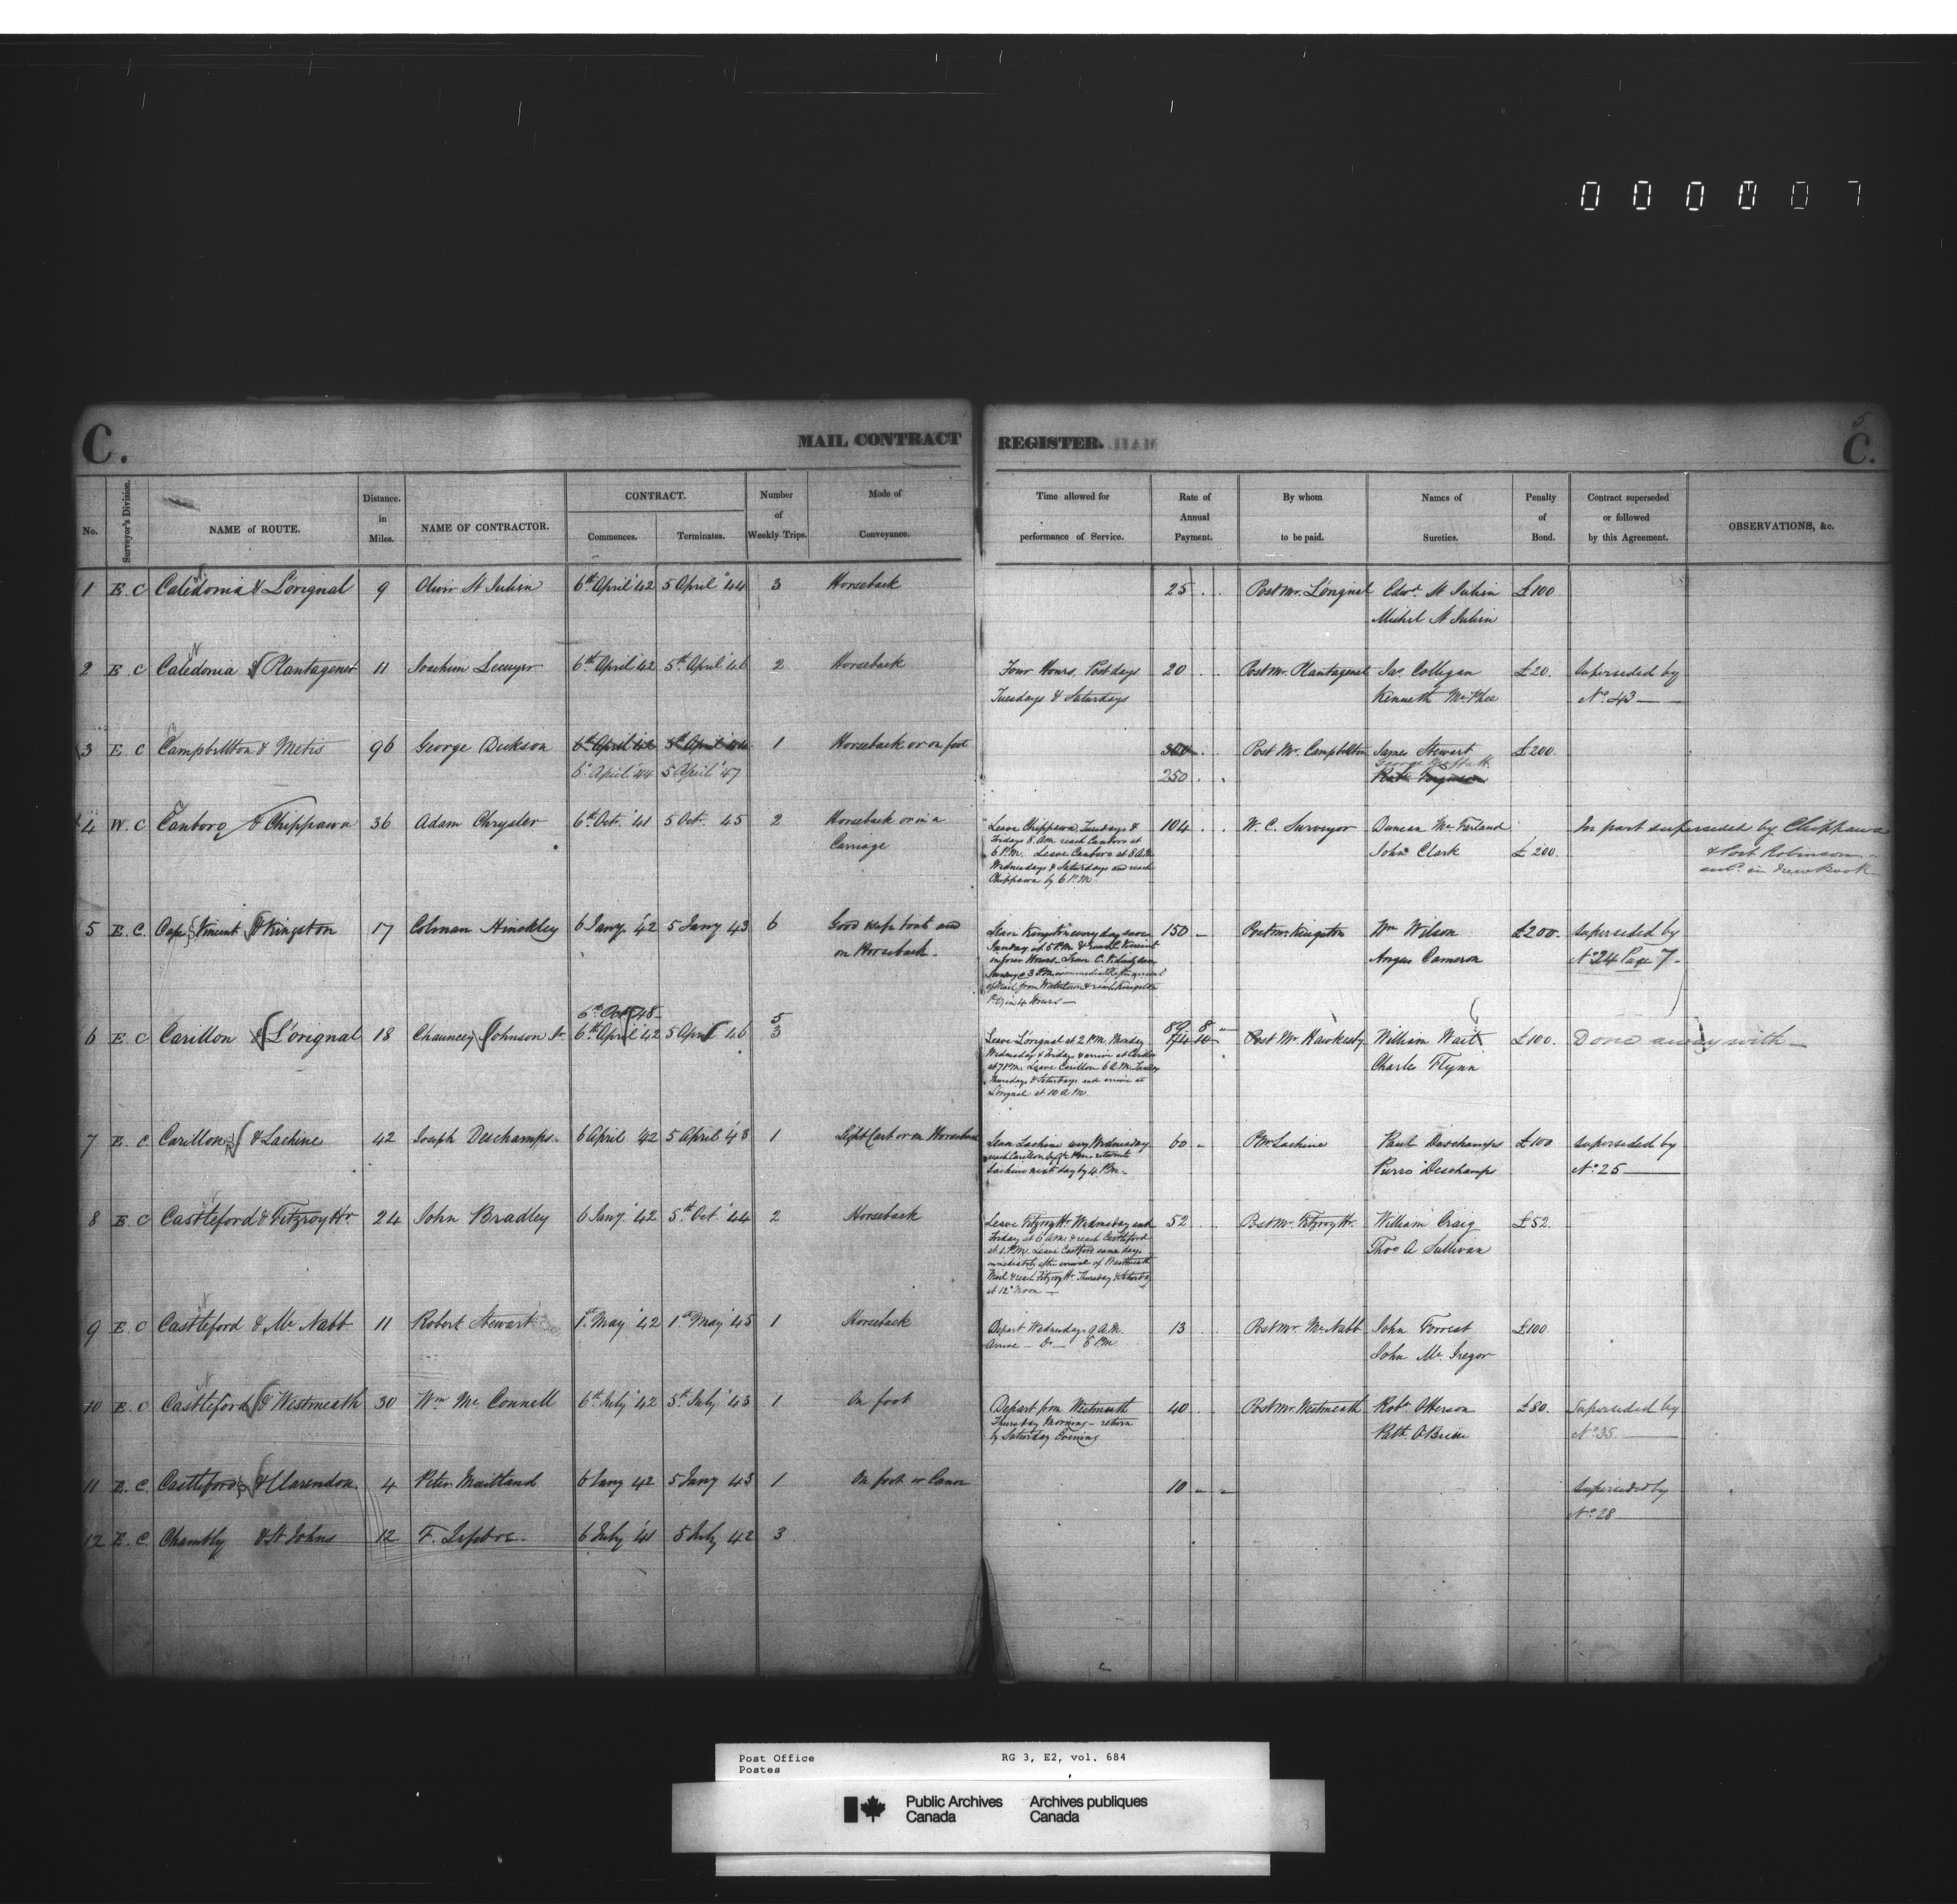 0 0 0 0 0 7
5
C. MAIL CONTRACT REGISTER. C.
No. Surveyor's Division. NAME of ROUTE. Distance in Miles. NAME OF CONTRACTOR. CONTRACT. Commences. Terminates. Number of Weekly Trips. Mode of Conveyance. Time allowed for performance of Service. Rate of Annual Payment. By whom to be paid. Names of Sureties. Penalty of Bond. Contract superseded or followed by this Agreement. OBSERVATIONS, &c.
1 E. C Caledonia & L'orignal 9 Oliver St Julien 6th April '42 5 April '44 3 Horseback 25 . . Post Mr. L'orignal Edwd. St Julien £100
Michel St Julien
2 E. C Caledonia & Plantagenet 11 Joachim Lecuyer 6th April '42 5th April '46 2 Horseback Four Hours. Post days 20 . . Post Mr. Plantagenet Jas. Colligan £20. Superseded by
Tuesdays & Saturdays Kenneth McPhee No. 43
3 E. C Campbellton & Metis 96 George Dickson 6th April '42 5th April '44 1 Horseback or on foot 300 . . Post Mr. Campbellton James Stewart £200.
6 April '44 5 April '47 250 . . Robt Ferguson
4 W. C Canboro & Chippawa 36 Adam Chrysler 6th Oct. '41 5 Oct. 45 2 Horseback or in a Leave Chippawa, Tuesdays & 104 . . W. C. Surveyor Duncan McFarland In part superseded by Chippawa
Carriage Fridays 8 AM reach Canboro at John Clark £200. & Port Robinson
6 P.M. Leave Canboro at 8 AM in New Book
Wednesdays & Saturdays and reach
Chippawa by 6 P.M
5 E. C. Cape Vincent & Kingston 17 Colman Hinckley 6 Jany. '42 5 Jany 43 6 Good & safe boats and Leave Kingston every day save 150 - Postmr Kingston Wm Wilson £200. Superseded by
on Horseback. Sunday at 5 P.M & reach C. Vincent Angus Cameron No 24 Page 7.
in four Hours.
in 4 Hours
6th Oct 45 5
6 E. C Carillon & L'orignal 18 Chauncey Johnson Jr 6th April '42 5 April 46 3 Leave L'orignal at 2 P.M. Monday 89 8 - Post Mr. Hawkesby William Wait £100. Done away with
74 10 -
Wednesday & Friday & arrive at Carillon Charles Flynn
at 7 P.M. Leave Carillon 6 A.M. Tuesday
Thursdays & Saturdays and arrive at
L'orignal at 10 A.M.
7 E. C. Carillon & Lachine 42 Joseph Deschamps. 6 April '42 5 April '43 1 Light Cart or on Horseback Leave Lachine every Wednesday 60 - P.Mr Lachine Paul Deschamps £100 Superseded by
reach Carillon by 6 P.M. return to Pierre Deschamps No. 25
Lachine next day by 4 P.M.
8 E. C Castleford & Fitzroy Hr 24 John Bradley 6 Jany. '42 5th Oct. '44 2 Horseback Leave Fitzroy Hr. Wednesday and 52 . . Post Mr. Fitzroy Hr. William Craig £52.
Friday at 6 A.M. & reach Castleford Thos A Sullivan
at 1 P.M. Leave Castford same days
immediately after arrival of Westmeath
Mail & reach Fitzroy Hr. Thursday & Saturday
at 12 Noon
9 E. C Castleford & McNabb 11 Robert Stewart 1st May '42 1st May '45 1 Horseback Depart Wednesdays 9 A.M. 13 . . Post Mr. McNabb John Forrest £100
Arrive - Do - 6 P.M. John McGregor
10 E. C Castleford & Westmeath 30 Wm McConnell 6th July '42 5th July '43 1 On foot Depart from Westmeath 40 . . Post Mr. Westmeath Robt. Otterson £80. Superseded by
Thursday Morning - return Patk. OBrien No. 35.
by Saturday Evening
11 E. C. Castleford & Clarendon 4 Peter Maitland 6 Jany 42 5 Jany 43 1 On foot or Canoe 10 - - Superseded by
No. 28
12 E. C. Chambly & St Johns 12 F. Lefebvre 6 July '41 5 July 42 3
Post Office RG 3, E2, vol. 684
Postes
Public Archives Archives publiques
Canada Canada